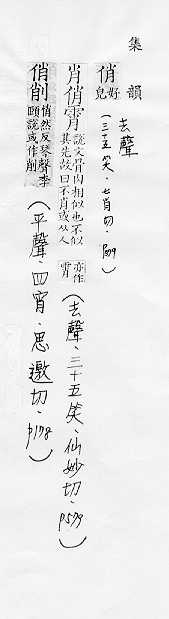 集韻
俏好皃 去聲(三十五笑.七肖切.p579)
肖俏霄說文骨肉相似也不似其先故曰不肖或从人亦作霄(去聲.三十五笑.仙妙切.p579)
俏削俏然反琴聲李頤說或作削(平聲.四宵.思邀切.p178)